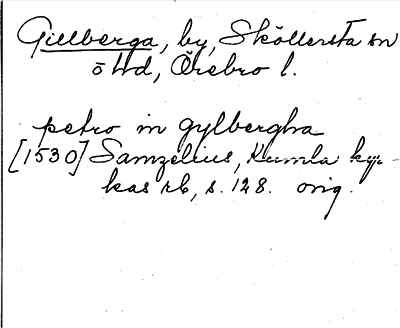 Gillberga, by, Sköllersta sn
ö hd, Örebro l.
petro in gylbergha
[1530] Samzelius, Kumla kyr-
kas rb, s. 128. orig.